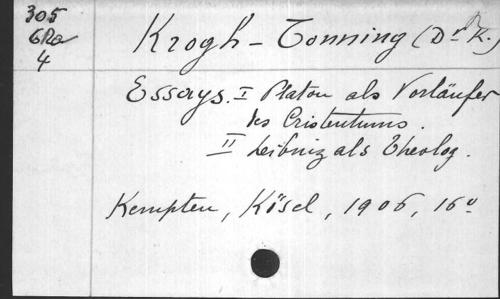 305
6Ra
4
Krogh-Tonning (Dr K.)
Essays. I Platon als Vorläufer
des Cristentums.
II Leibniz als Theolog.
Kempten, Kösel, 1906, 16º